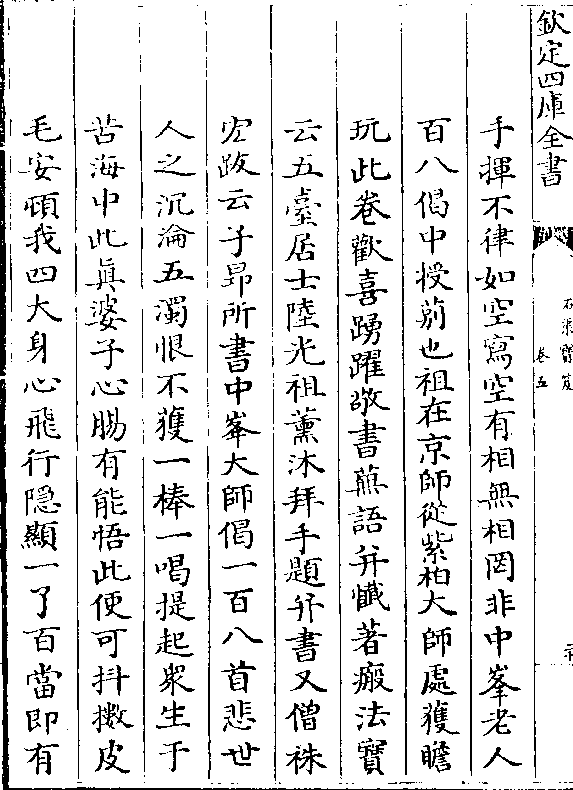 欽定四庫全書
石渠寶笈
卷五
手揮不律如空寫空有相無相罔非中峯老人
百八偈中授莂也祖在京師從紫柏大師處獲瞻
玩此卷歡喜踴躍敬書蕪語并懺著瘢法寶
云五臺居士陸光祖薰沐拜手題并書又僧祩
宏跋云子昻所書中峯大師偈一百八首悲世
人之沉淪五濁恨不獲一棒一喝提起衆生于
苦海中此真婆子心腸有能悟此便可抖擻皮
毛安頓我四大身心飛行隠顯一了百當即有